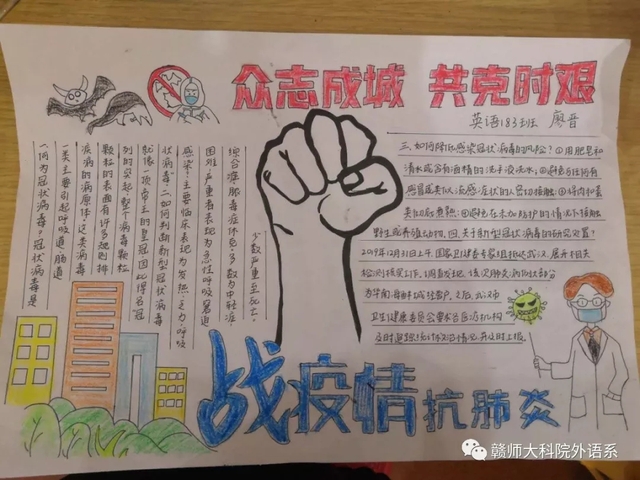 众志成城 共克时艰
英语183班 廖音
一、何为冠状病毒?冠状病毒是
一类主要引起呼吸道、肠道
疾病的病原体。这类病毒
颗粒的表面有许多规则排
列的突起,整个病毒颗粒
就像一顶帝王的皇冠,因此得名冠
状病毒。二、如何判断新型冠状病毒
感染?主要临床表现为发热、乏力,呼吸
困难,严重者表现为急性呼吸窘迫
综合症、脓毒症休克,多数为中轻症,
少数严重至死亡。
三、如何降低感染冠状病毒的风险?①用肥皂和
清水或含有酒精的洗手液洗水;②避免与任何有
感冒或类似流感症状的人密切接触;③
④避免在未加防护的情况下接触
野生或养殖动物。四、关于新型冠状病毒的研究处置?
2019年12月31日上午,国家卫健委专家组抵达武汉,展开相关
检测核实工作,调查发现,该次肺炎病例大部分
为华南海鲜城经营户。之后,武汉市
卫生健康委员会要求各医疗机构
及时追踪
战疫情 抗肺炎
赣师大科院外语系